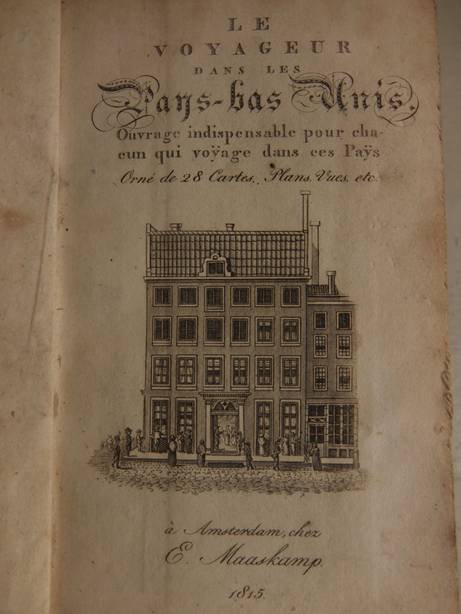 LE
VOYAGEUR
DANS LES
Pays-bas Unis.
Ouvrage indispensable pour cha-
cun qui voÿage dans ces Paÿs
Orné de 28 Cartes, Plans, Vues, etc.
à Amsterdam, chez
E. Maaskamp.
1815.